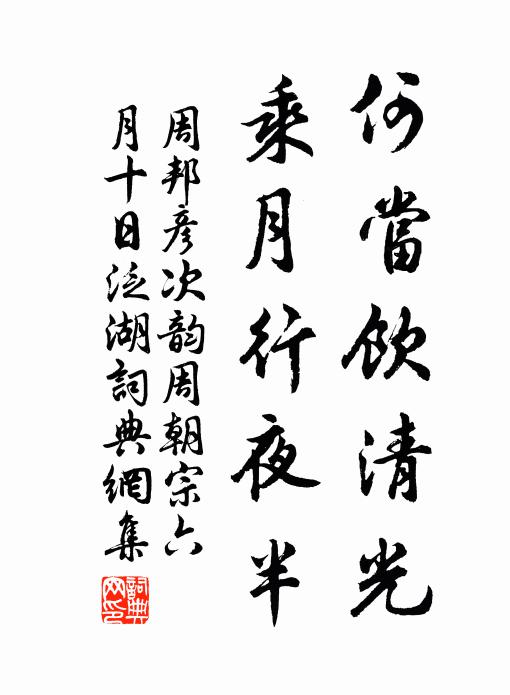 何當飲清光
乘月行夜半
周邦彥次韵周朝宗六
月十日泛湖詞典網集
詞典網印